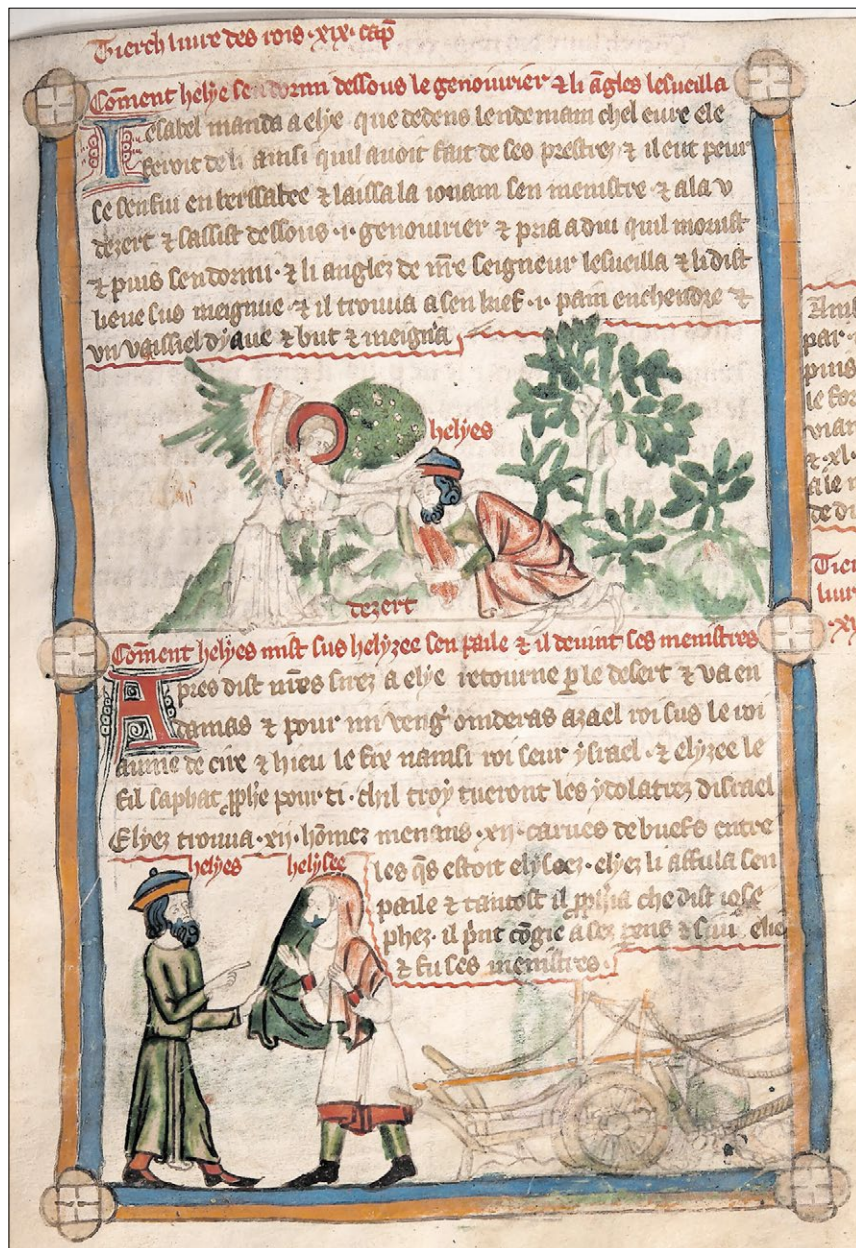 Tierch liure des rois · xix · cap̄
Com̄ent helye sendormi dessous le genouurier ⁊ li āgles lesueilla
Iesabel manda a elye que dedens lendemain chel eure ele
feroit de li ainsi quil auoit fait de ses prestrez ⁊ il eut peur
se senfui en berssabee ⁊ laissa la ionam sen menistre ⁊ ala v
dezert ⁊ sassist dessous · i · genouurier ⁊ pria a diu quil morust
⁊ puis sendormi · ⁊ li anglez de nr̄e seigneur lesueilla ⁊ li dist
lieue sus meigniue · ⁊ il trouua a sen kief · i · pain enchendre ⁊
vn vaissiel dyaue ⁊ but ⁊ meigna
helyes
dezert
Com̄ent helyes mist sus helyzee sen paile ⁊ il deuint ses menistres
Apres dist nr̄es sirez a elye retourne p̱ le desert ⁊ va en
damas ⁊ pour mi veng̾ oinderas azael roi sus le roi
aume de cire ⁊ hieu le fix namsi roi seur ysrael · ⁊ elyzee le
fil saphat pp̄he pour ti · chil troy tueront les ydolatrez disrael
Elyez trouua · xij · hōmez menans · xij · carues de buefs entre
les q̄s estoit elysez · elyez li affula sen
paile ⁊ tantost il pp̄hia che dist iose
phez · il pͥnt cōgie a sez gens ⁊ siui elie
⁊ fu ses menistres ·
helyes
helysee
Amb
par
puis
le for
vian
⁊ · xl ·
a le m
de di
Tier
liur
· xx